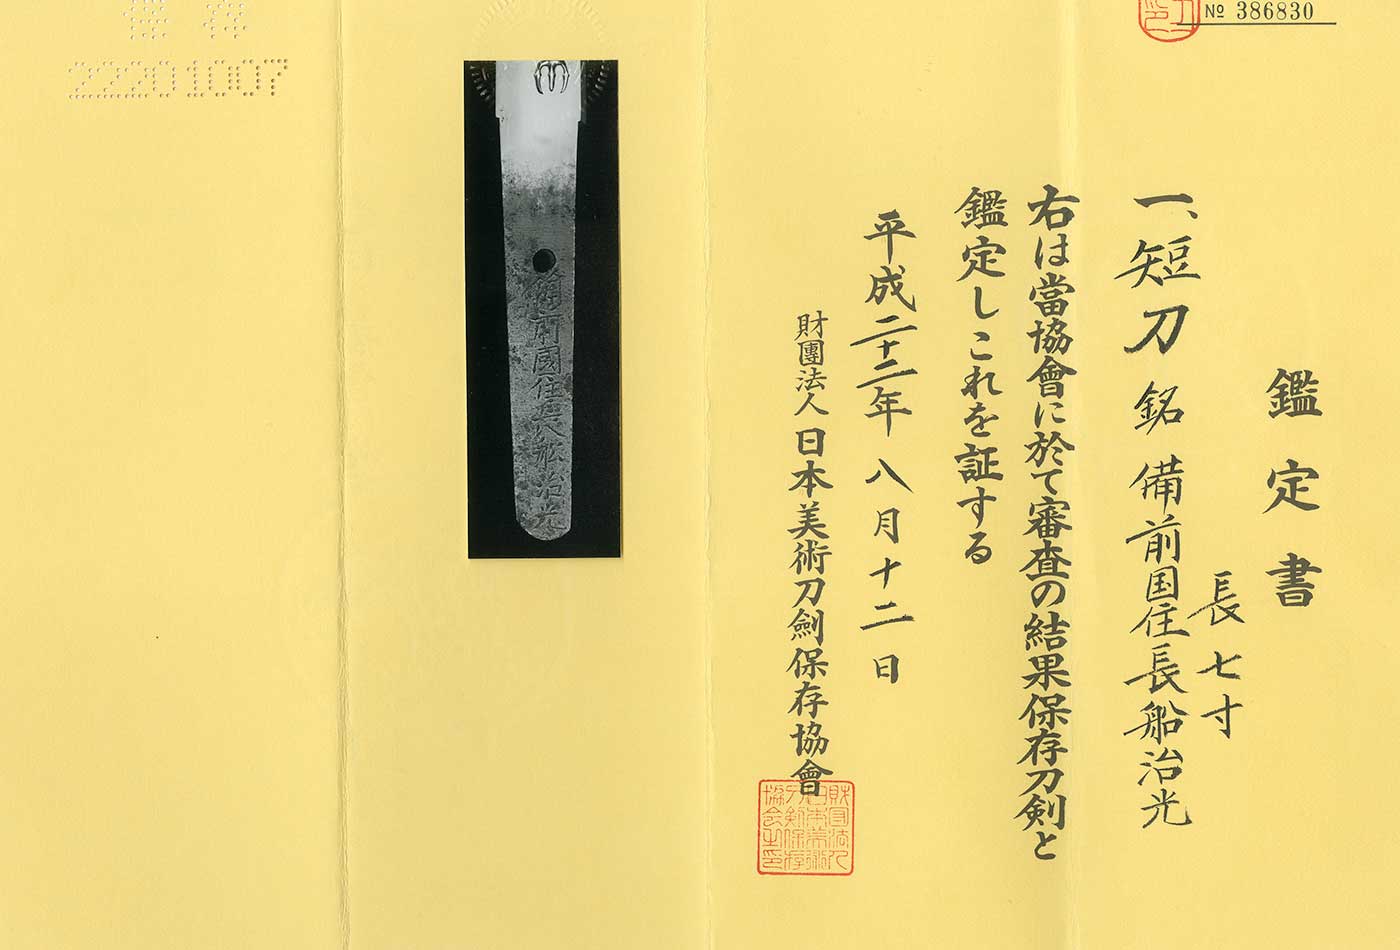 No 386830
鑑定書
一、短刀 銘 備前国住長船治光
長七寸
右は當協會に於て審査の結果保存刀剣と
鑑定しこれを証する
平成二十二年八月十二日
財團法人日本美術刀劍保存協會
財団法人
日本美術
刀剣保存
協会之印
備前國住長船治光
保存
22201007